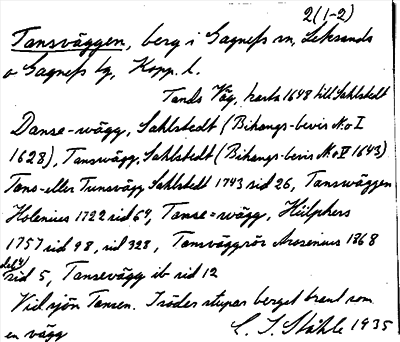 2(1-2)
Tansväggen, berg i Gagnefs sn, Leksands
o Gagnefs tg, Kopp. l.
Tands Väg, karta 1648 till Sahlstedt
Danse-wägg, Sahlstedt (Bihangs-bevis No I
1628), Tanswägg, Sahlstedt (Bihangs-bevis No V 1643)
Tans- eller Tunsvägg, Sahlstedt 1743 sid 26, Tanswäggen
Holenius 1722 sid 69, Tanse=wägg, Hülphers
1757 sid 98, sid 328, Tansväggrör Arosenius 1868
del 4)
sid 5, Tansevägg ib sid 12
Vid sjön Tansen. I söder stupar berget brant som
en vägg
C. I. Ståhle 1935